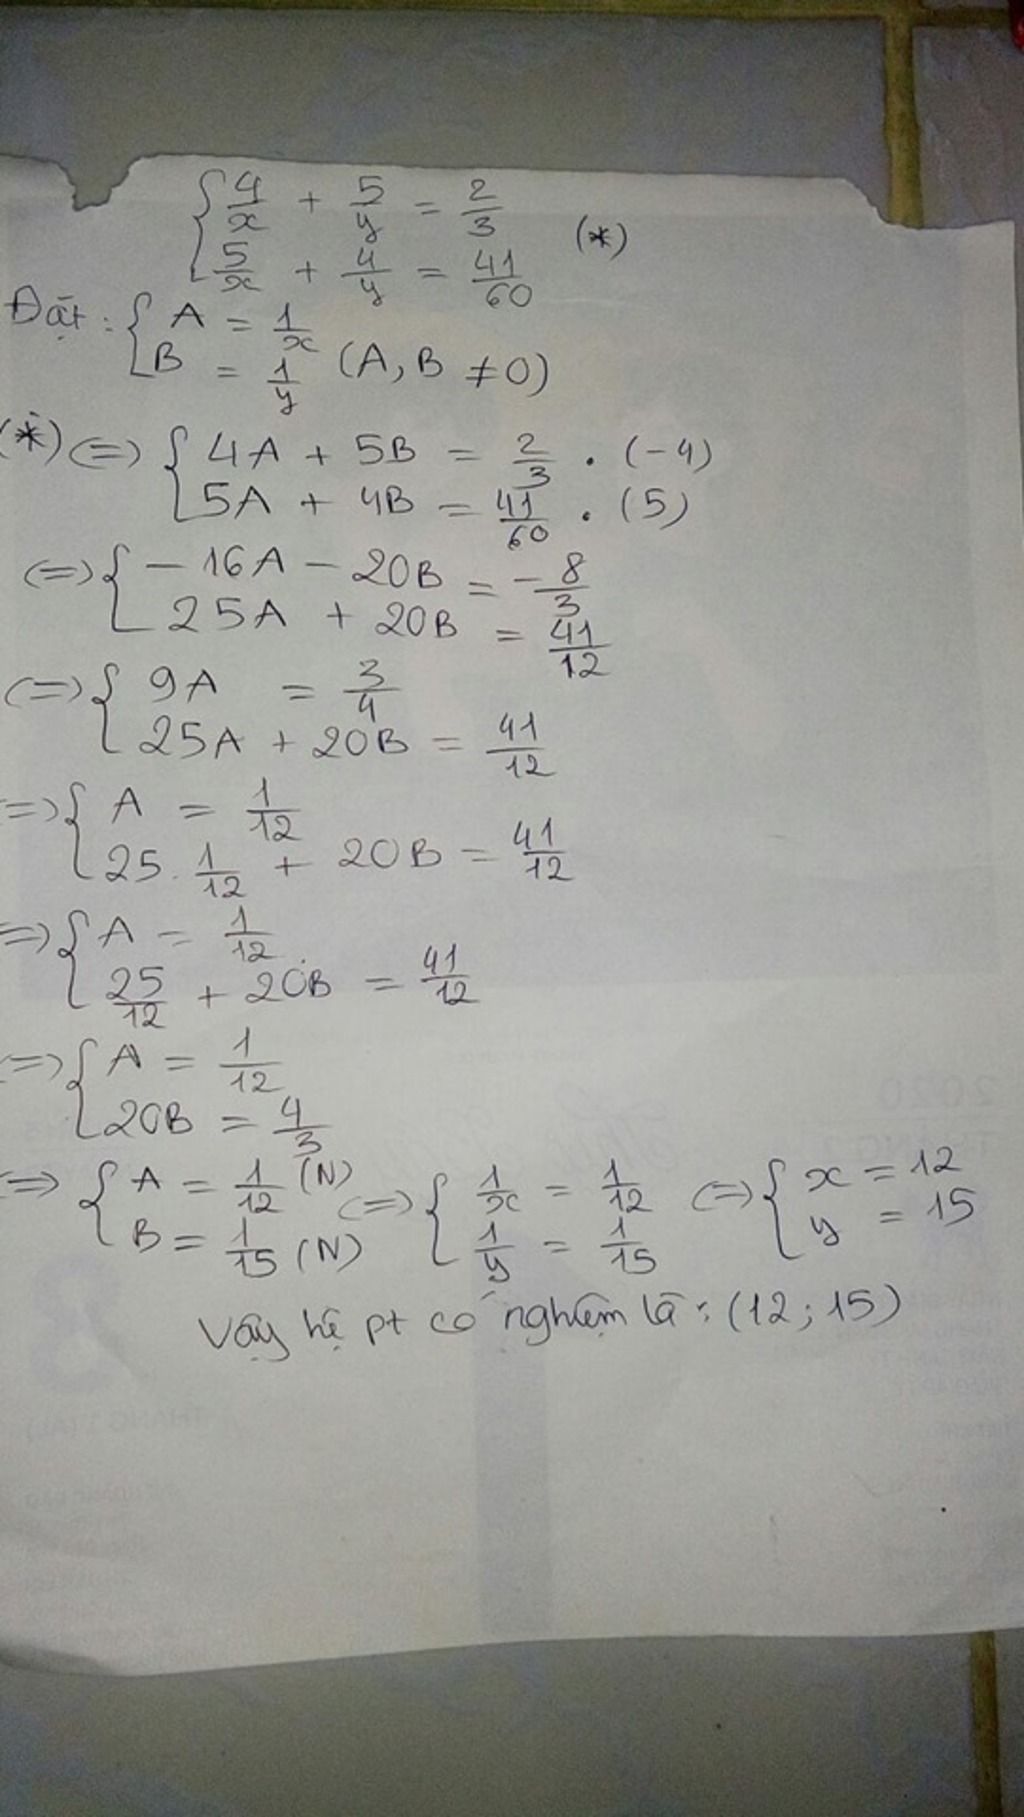 { 4/x + 5/y = 2/3
{ 5/x + 4/y = 41/60 (*)
Đặt : { A = 1/x
{ B = 1/y (A, B ≠ 0)
(*) <=> { 4A + 5B = 2/3 . (-4)
{ 5A + 4B = 41/60 . (5)
<=> { -16A - 20B = -8/3
{ 25A + 20B = 41/12
<=> { 9A = 3/4
{ 25A + 20B = 41/12
=> { A = 1/12
{ 25 . 1/12 + 20B = 41/12
=> { A = 1/12
{ 25/12 + 20B = 41/12
=> { A = 1/12
{ 20B = 4/3
=> { A = 1/12 (N) <=> { 1/x = 1/12 <=> { x = 12
{ B = 1/15 (N) { 1/y = 1/15 { y = 15
Vậy hệ pt có nghiệm là : (12 ; 15)
2020